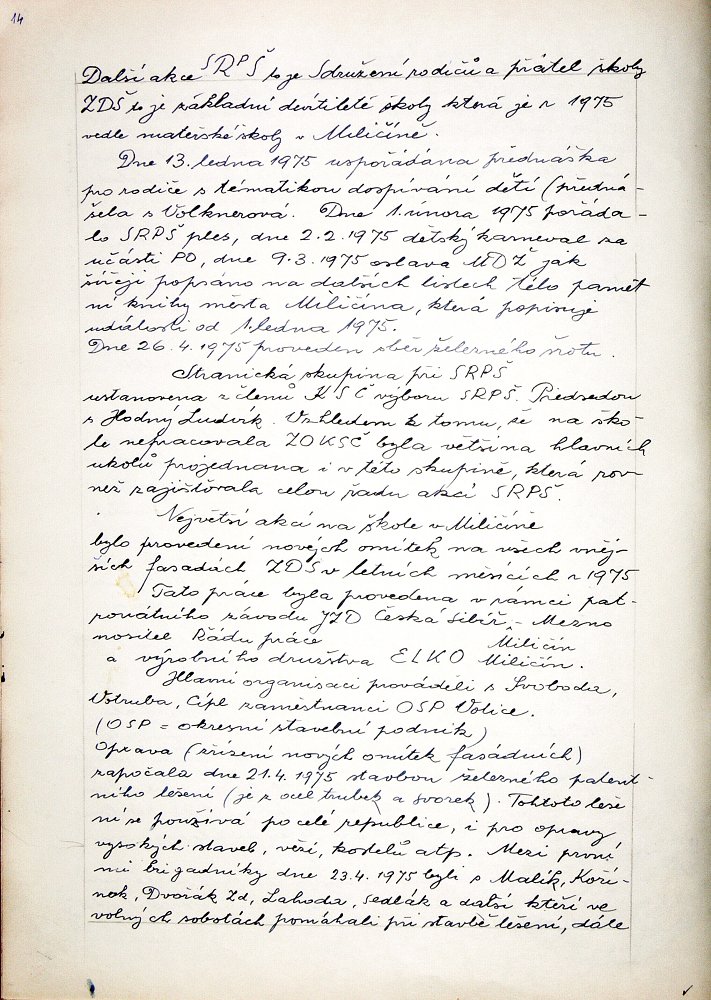 14
Další akce SRPŠ to je Sdružení rodičů a přátel školy
ZDŠ to je základní devítileté školy která je r 1975
vedle mateřské školy v Miličíně.
Dne 13. ledna 1975 uspořádána přednáška
pro rodiče s tématikou dospívání dětí (předná-
šela s Volknerová. Dne 1. února 1975 pořáda-
lo SRPŠ ples, dne 2.2.1975 dětský karneval za
účásti PO, dne 9.3.1975 oslava MDŽ jak
šířeji popsáno na dalších listech této pamět
ní knihy města Miličína, která popisuje
události od 1. ledna 1975.
Dne 26.4.1975 proveden sběr železného šrotu.
Stranická skupina při SRPŠ
ustanovena z členů KSČ výboru SRPŠ. Předsedou
s Hodný Ludvík. Vzhledem k tomu, že na ško-
le nepracovala ZOKSČ byla většina hlavních
ukolů projednana i v této skupině, která rov-
něž zajišťovala celou řadu akcí SRPŠ.
Největší akcí na škole v Miličíně
bylo provedení nových omítek na všech vněj-
ších fasadách ZDŠ v letních měsících r 1975
Tato práce byla provedena v rámci pat-
ronátního závodu JZD Česká Sibiř - Mezno
nositel Řádu práce Miličín
a výrobního družstva ELKO Miličín.
Hlavní organisaci prováděli s Svoboda,
Votruba, Cípl zaměstnanci OSP Votice.
(OSP = okresní stavební podnik)
Oprava (zřízení nových omítek fasádních)
započala dne 21.4.1975 stavbou železného patent-
ního lešení (je z ocel trubek a svorek). Tohtoto leše
ní se používá po celé republice, i pro opravy
vysokých staveb, věží, kostelů atp. Mezi první
mi brigadníky dne 23.4.1975 byli s Malík, Koří-
nek, Dvořák Zd, Lahoda, Sedlák a další kteří ve
volných sobotách pomáhali při stavbě lešení, dále